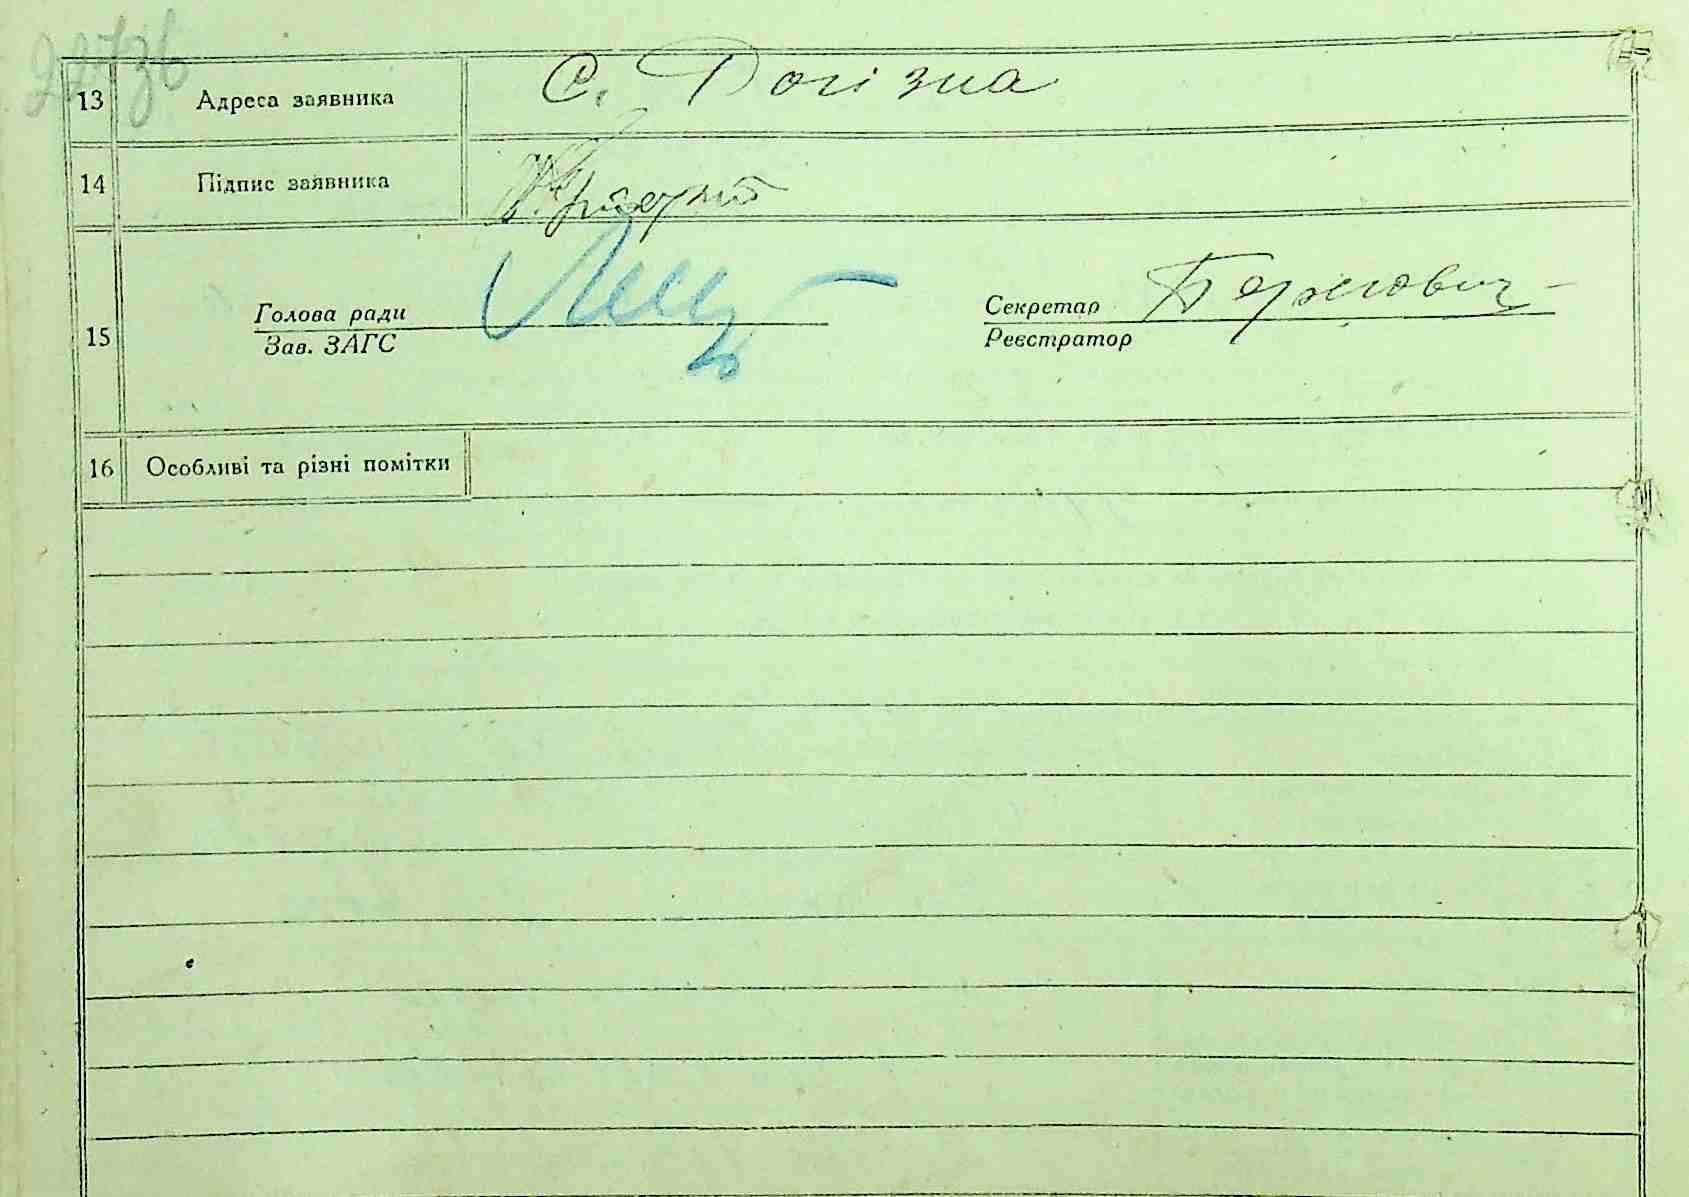 13 Адреса заявника С. Логізна
14 Підпис заявника
15 Голова ради
Зав. ЗАГС
Секретар
Реєстратор
16 Особливі та різні помітки